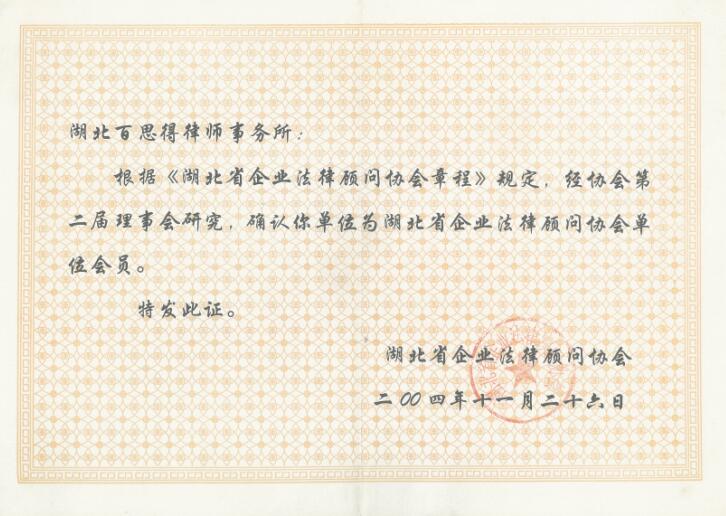 湖北百思得律师事务所：
根据《湖北省企业法律顾问协会章程》规定，经协会第
二届理事会研究，确认你单位为湖北省企业法律顾问协会单
位会员。
特发此证。
湖北省企业法律顾问协会
二00四年十一月二十六日